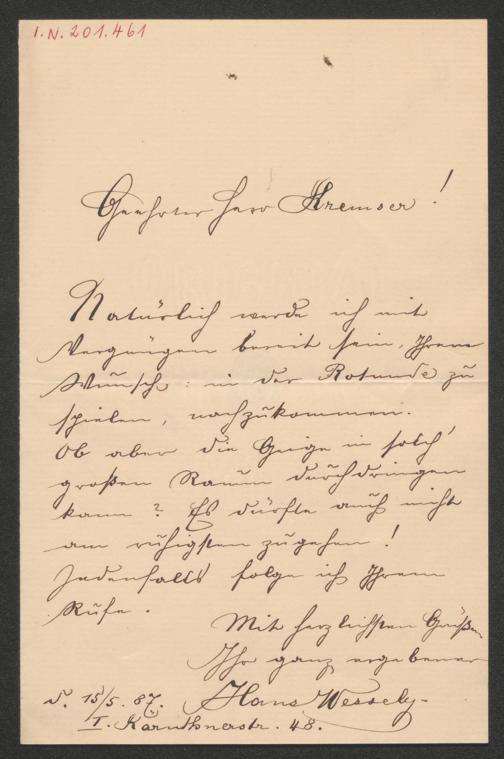 I.N. 201.461
Geehrter Herr Kremser!
Natürlich werde ich mit
Vergnügen bereit sein, Ihrem
Wunsche: in der Rotunde zu
spielen, nachzukommen.
Ob aber die Geige in solch'
großen Raum durchdringen
kann? Es dürfte auch nicht
am ruhigsten zugehen!
Jedenfalls folge ich Ihrem
Rufe.
Mit herzlichsten Grüßen
Ihr ganz ergebener
Hans Wessely
d. 15/5. 87.
I. Kärnthnerstr. 48.